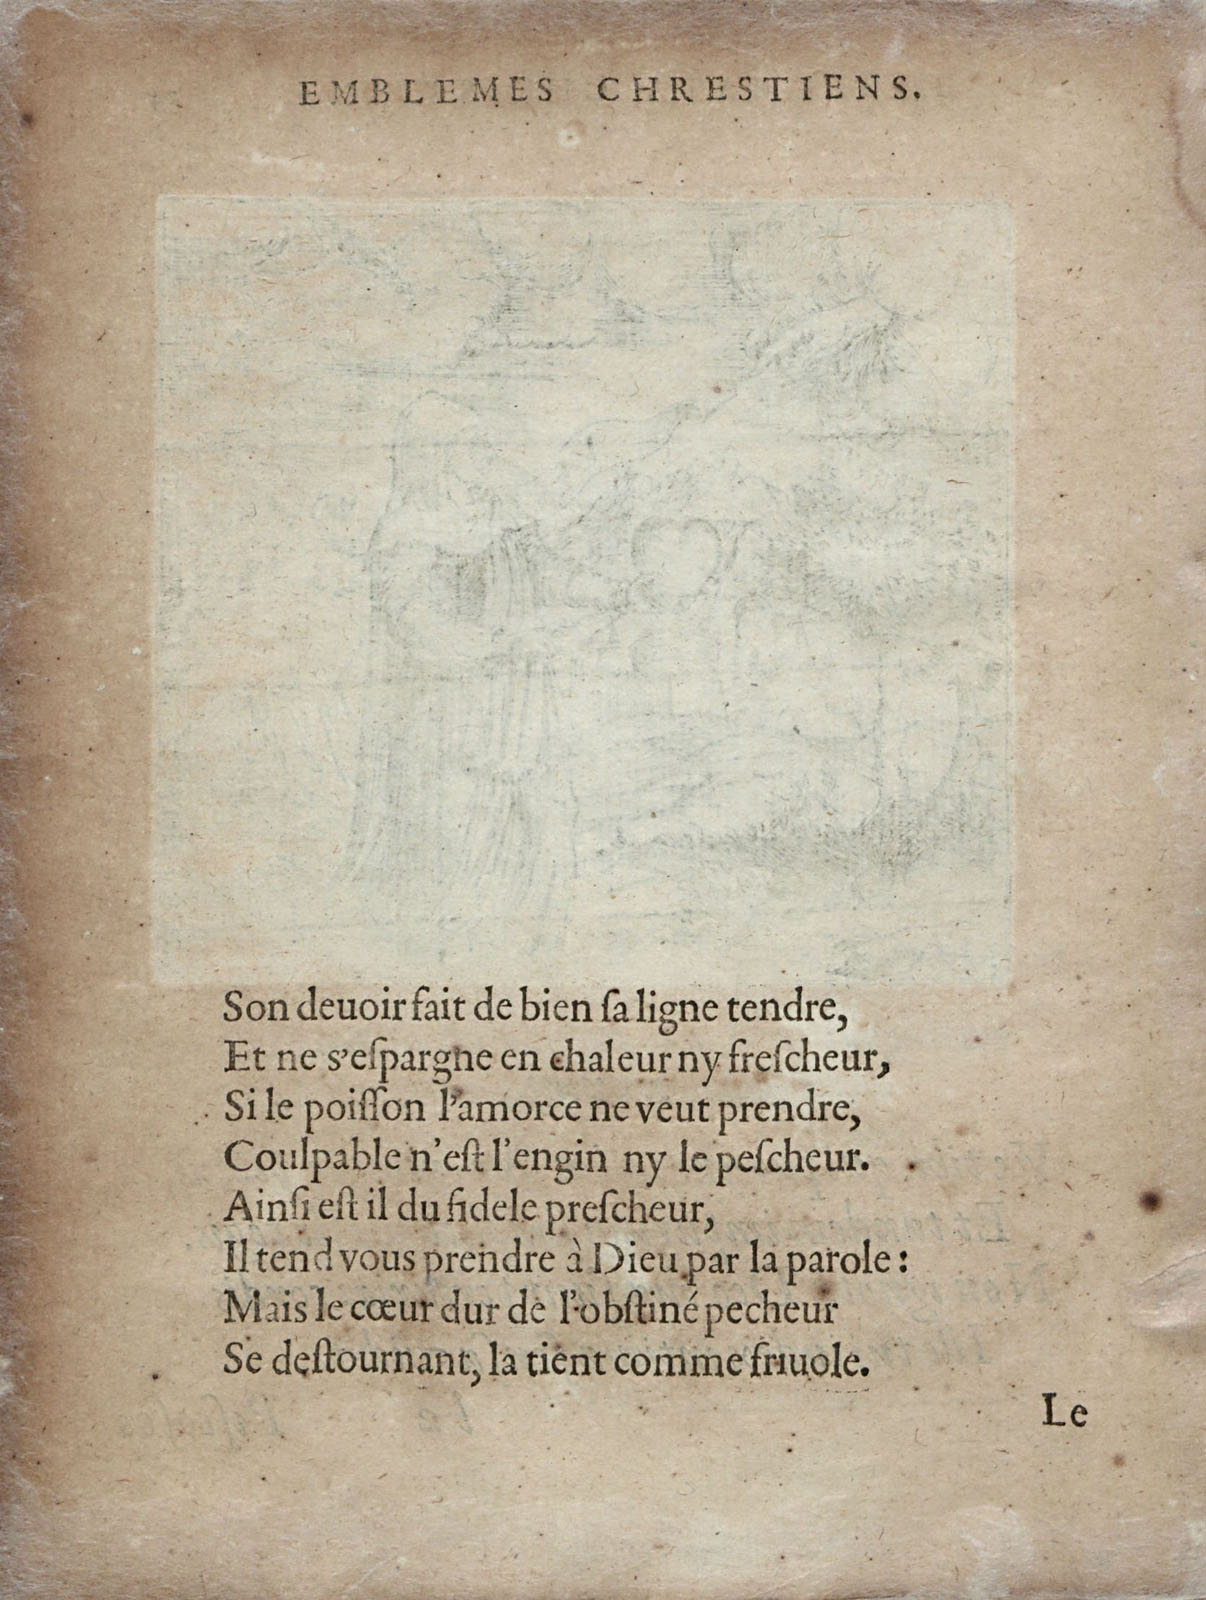 EMBLEMES CHRESTIENS.
Son deuoir fait de bien ſa ligne tendre,
Et ne s'eſpargne en chaleur ny freſcheur,
Si le poiſſon l'amorce ne veut prendre,
Coulpable n'eſt l'engin ny le peſcheur.
Ainſi eſt il du fidele preſcheur,
Il tend vous prendre à Dieu par la parole:
Mais le cœur dur de l'obſtiné pecheur
Se deſtournant, la tient comme friuole.
Le